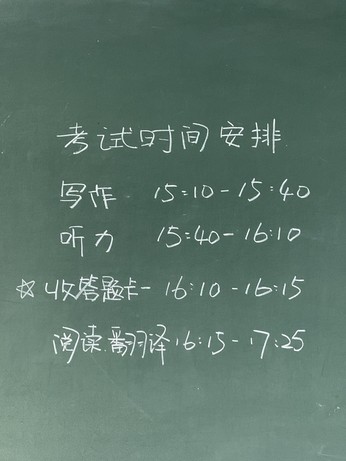 考试时间安排
写作 15:10-15:40
听力 15:40-16:10
☆收答题卡-16:10-16:15
阅读翻译16:15-17:25